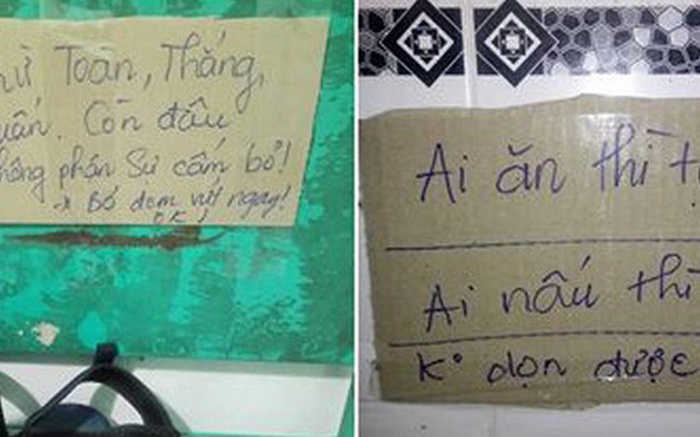 Toàn, Thắng,
Còn đâu
phận sự cấm bỏ!
→ Bỏ đem vứt ngay!
OK!
Ai ăn thì
Ai nấu thì
K° dọn được